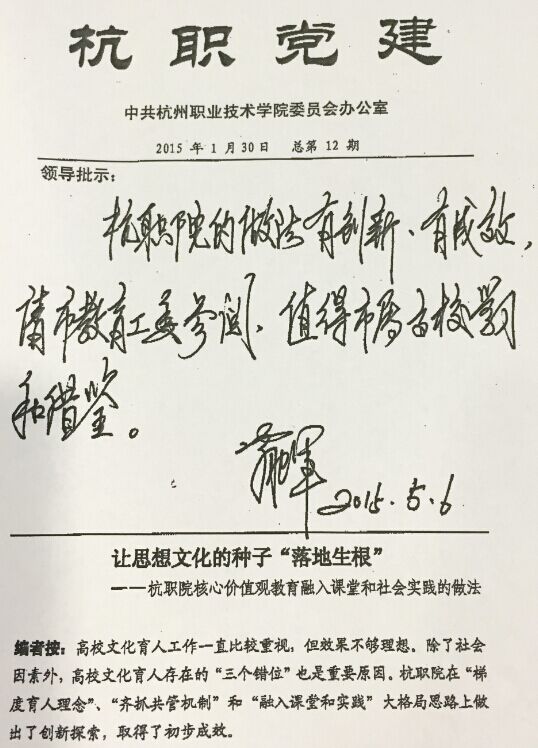 杭职党建
中共杭州职业技术学院委员会办公室
2015年1月30日 总第12期
领导批示：
杭职院的做法有创新、有成效，
请市教育工委参阅，值得市属高校学习
和借鉴。
2015.5.6
让思想文化的种子“落地生根”
——杭职院核心价值观教育融入课堂和社会实践的做法
编者按：高校文化育人工作一直比较重视，但效果不够理想。除了社会
因素外，高校文化育人存在的“三个错位”也是重要原因。杭职院在“梯
度育人理念”、“齐抓共管机制”和“融入课堂和实践”大格局思路上做
出了创新探索，取得了初步成效。